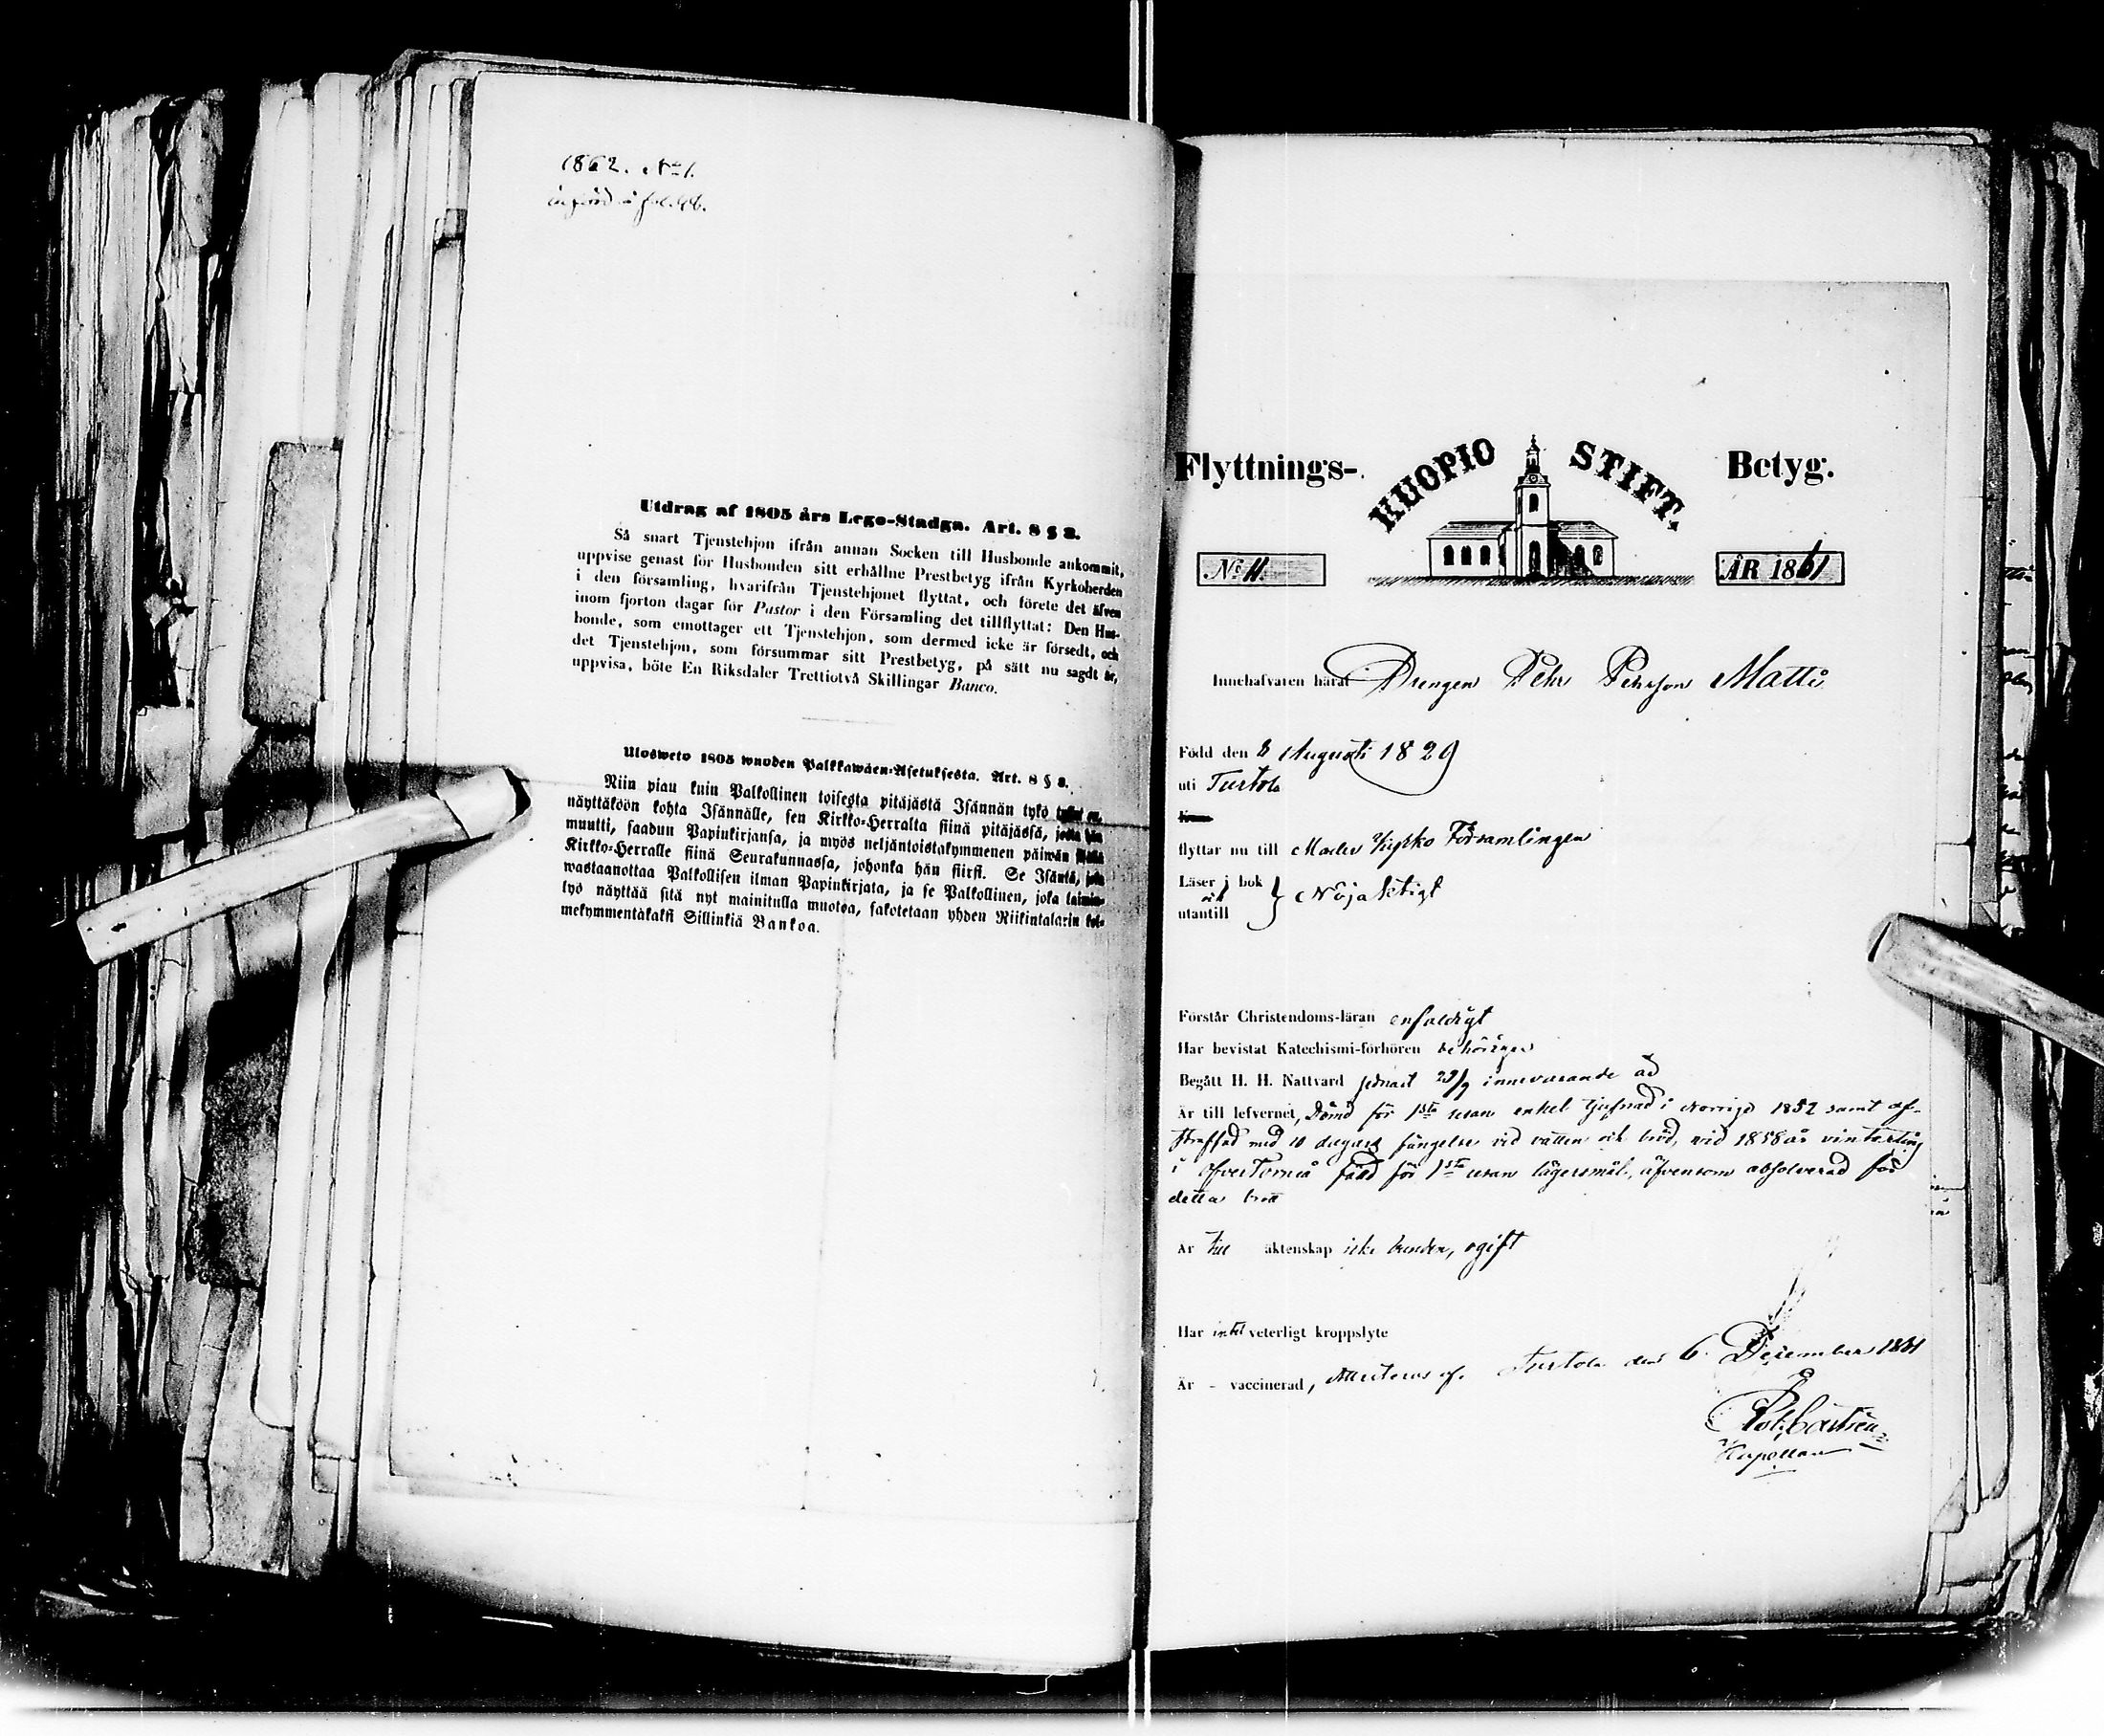 1862. No 1.
införd å fol. 46.
Utdrag af 1805 års Lego-Stadga. Art. 8 § 2.
Så snart Tjenstehjon ifrån annan Socken till Husbonde ankommit,
uppvise genast för Husbonden sitt erhållne Prestbetyg ifrån Kyrkoherden
i den församling, hvarifrån Tjenstehjonet flyttat, och förete det äfven
inom fjorton dagar för Pastor i den Församling det tillflyttat: Den Hus-
bonde, som emottager ett Tjenstehjon, som dermed icke är försedt, och
det Tjenstehjon, som försummar sitt Prestbetyg, på sätt nu sagdt är,
uppvisa, böte En Riksdaler Trettiotvå Skillingar Banco.
Ulosweto 1805 wuoden Palkkawäen-Asetuksesta. Art. 8 § 2.
Niin pian kuin Palkollinen toisesta pitäjästä Isännän tykö tullut on,
näyttäköön kohta Isännälle, sen Kirkko-Herralta siinä pitäjässä, josta hän
muutti, saadun Papinkirjansa, ja myös neljäntoistakymmenen päiwän
Kirkko-Herralle siinä Seurakunnassa, johonka hän siirsi. Se Isäntä, joka
wastaanottaa Palkollisen ilman Papinkirjata, ja se Palkollinen, joka laimin-
lyö näyttää sitä nyt mainitulla muotoa, sakotetaan yhden Riikintalarin kol-
mekymmentäkaksi Sillinkiä Bankoa.
Flyttnings- KUOPIO STIFT. Betyg.
No 11. ÅR 1861
Innehafvaren häraf Drengen Pehr Pehrson Matti
Född den 8 Augusti 1829
uti Turtola
flyttar nu till Församlingen
Läser i bok
och
utantill } Nöjaktigt
Förstår Christendoms-läran enfaldigt
Har bevistat Katechismi-förhören behörigen
Begått H. H. Nattvard sednast 29/9 innevarande år
Är till lefvernet, Dömd för 1sta resan enkel tjufnad i Norrige 1852 samt af-
straffad med 10 dagars fängelse vid vatten och bröd, vid 1858 års vinterting
i ÖfverTorneå fäld för 1sta resan lägersmål, äfvensom absolverad för
detta brott
Är till äktenskap icke bunden, ogift
Har intet veterligt kroppslyte
Är - vaccinerad, Attesteras af. Turtola den 6 December 1861
Kapellan